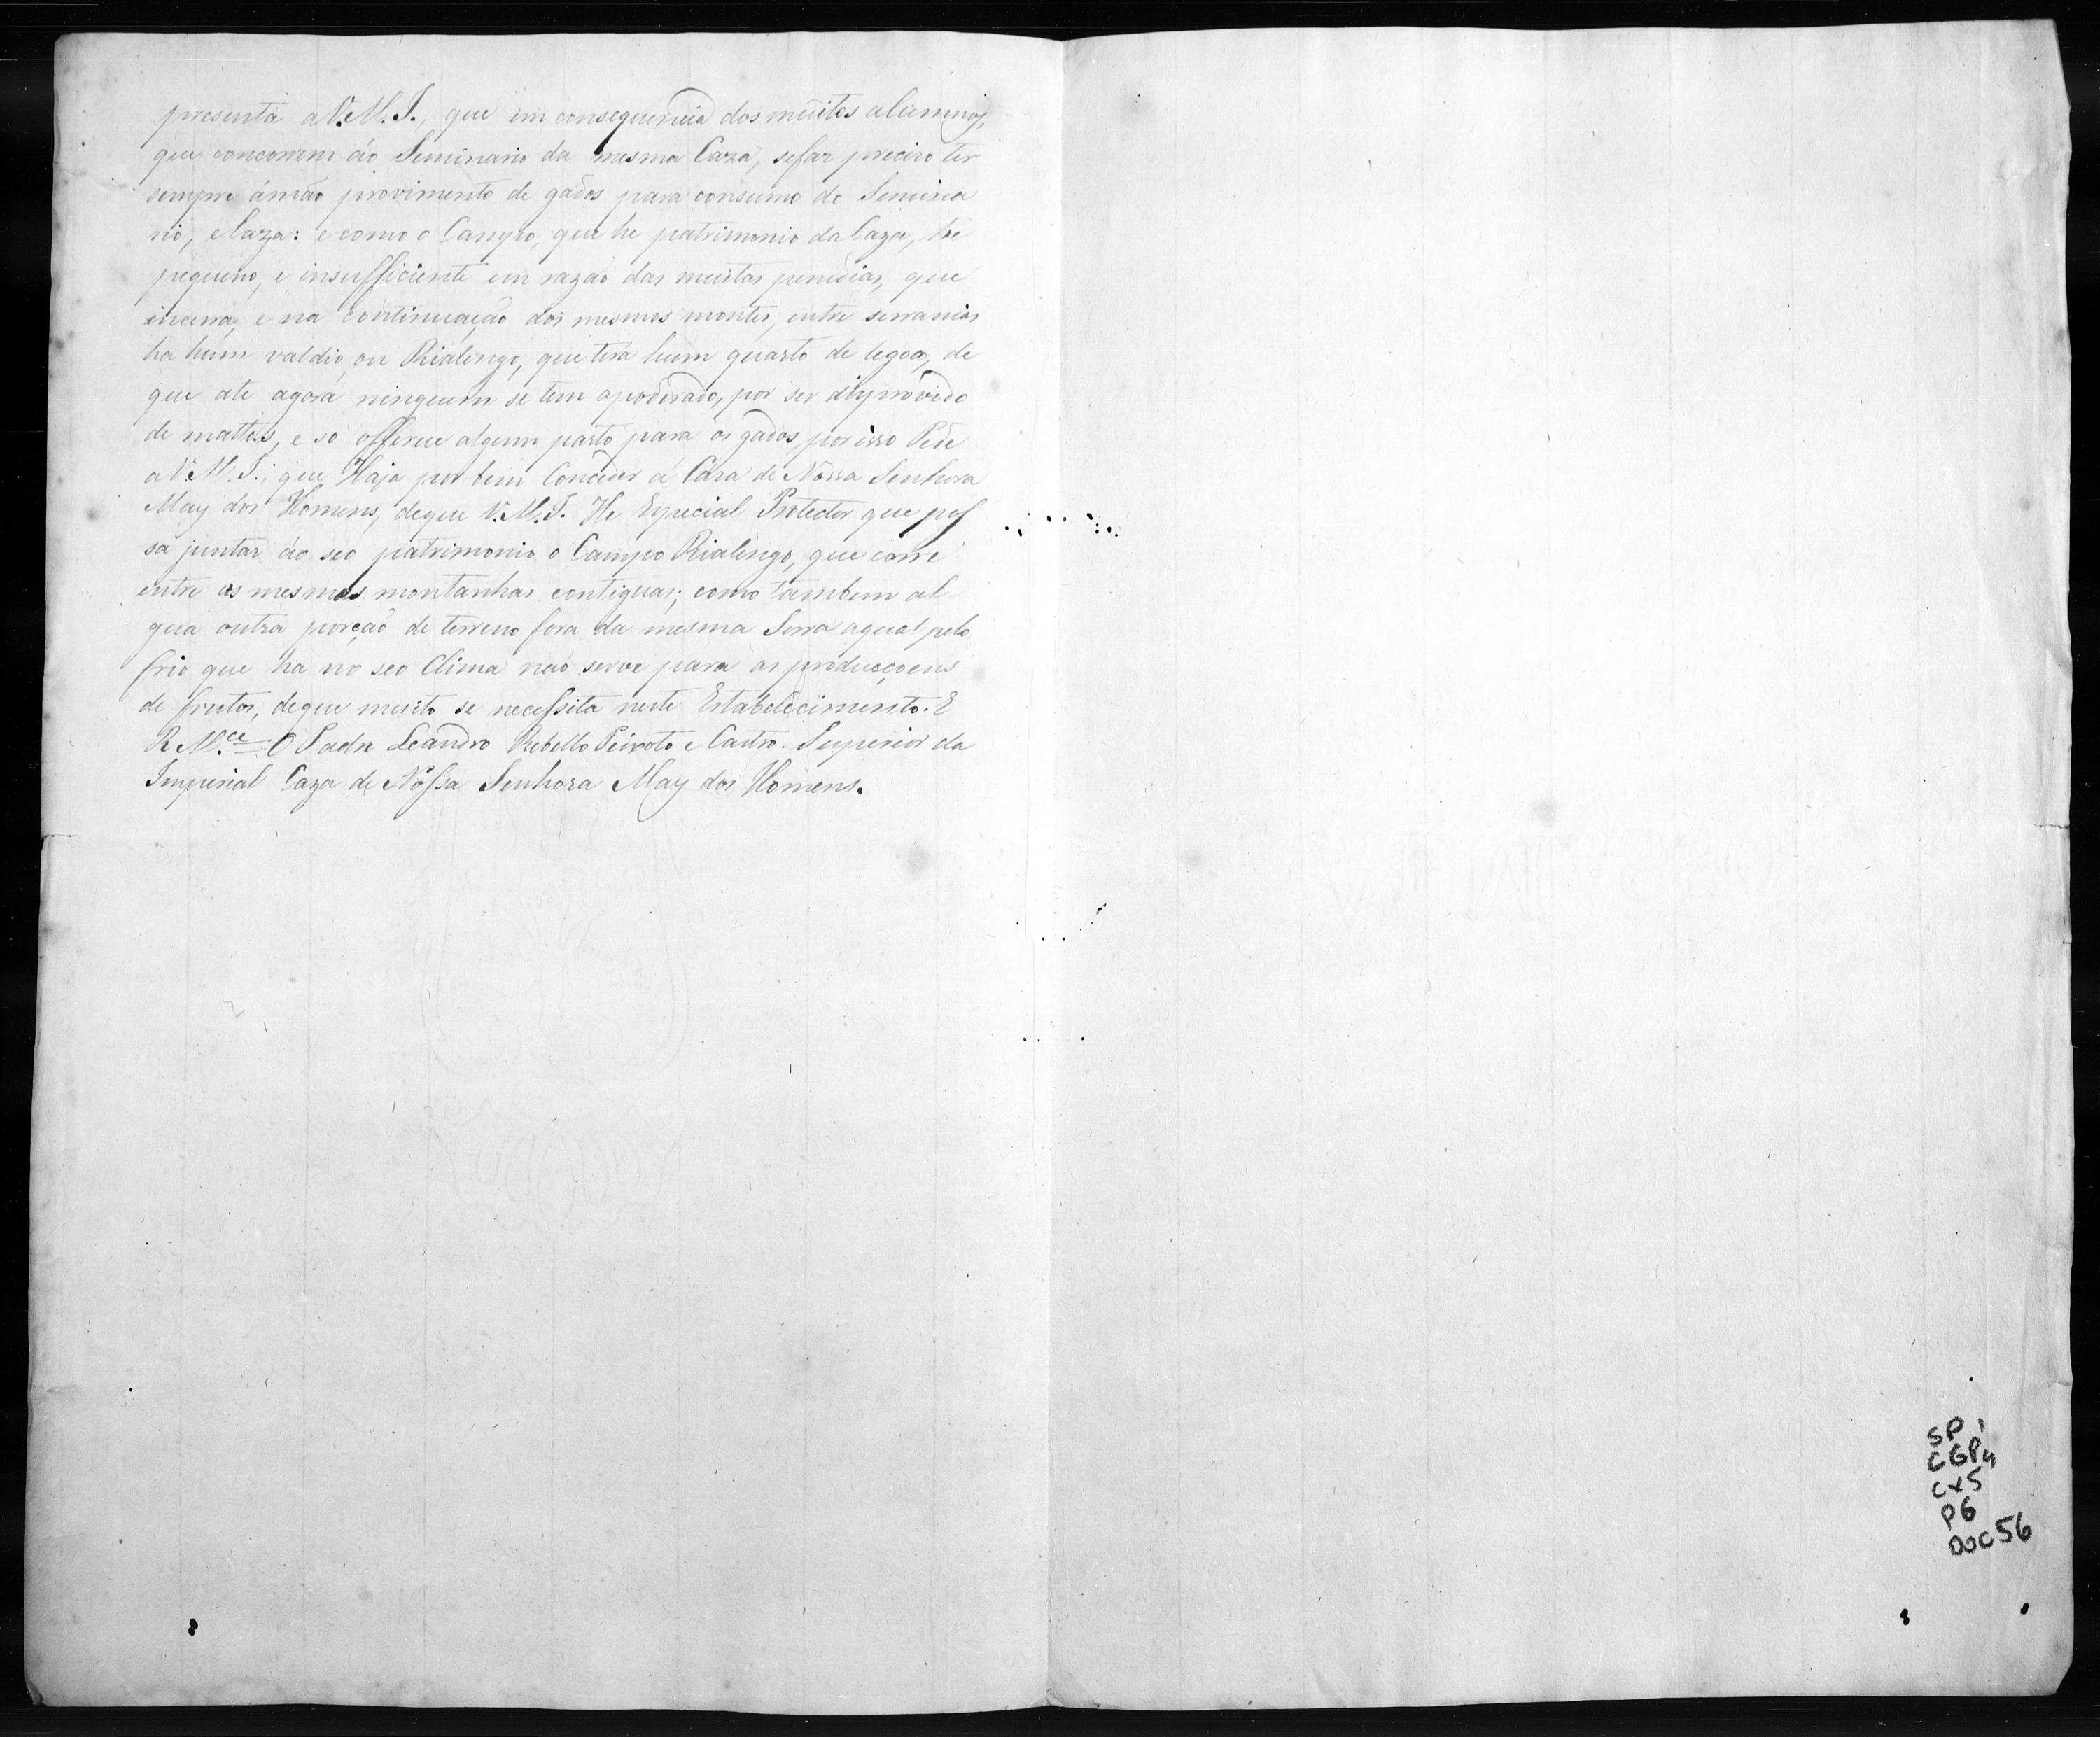 presenta a V. M. I., que em consequencia dos muitos alumnos,
que concorrem áo Seminario da mesma Caza, se faz preciso ter
sempre ámão provimento de gados para consumo do Semina
rio, e Caza: e como o Campo, que he patrimonio da Caza, he
pequeno, e insufficiente em razão das muitas penedias, que
encerra, e na continuação dos mesmos montes, entre serranias
ha hum valdio, ou Rialengo, que terá hum quarto de legoa, de
que ate agora ninguem se tem apoderado, por ser disprovido
de mattos, e só offerece algum pasto para os gados, por isso Pede
a V. M. I.; que Haja por bem Conceder á Casa de Nossa Senhora
May dos Homens, deque V. M. I. He Especial Protector que pos
sa juntar áo seo patrimonio o Campo Rialengo, que corre
entre as mesmas montanhas contiguas; como tambem al
gúa outra porção de terreno fora da mesma Serra aqual pelo
frio que ha no seo Clima não serve para as producçoens
de frutos, deque muito se necessita neste Estabelecimento. E
R. M.ce = O Padre Leandro Rebello Peixoto e Castro. Superior da
Imperial Caza de Nossa Senhora May dos Homens.
SP 1
CGP4
CX5
P6
DOC 56